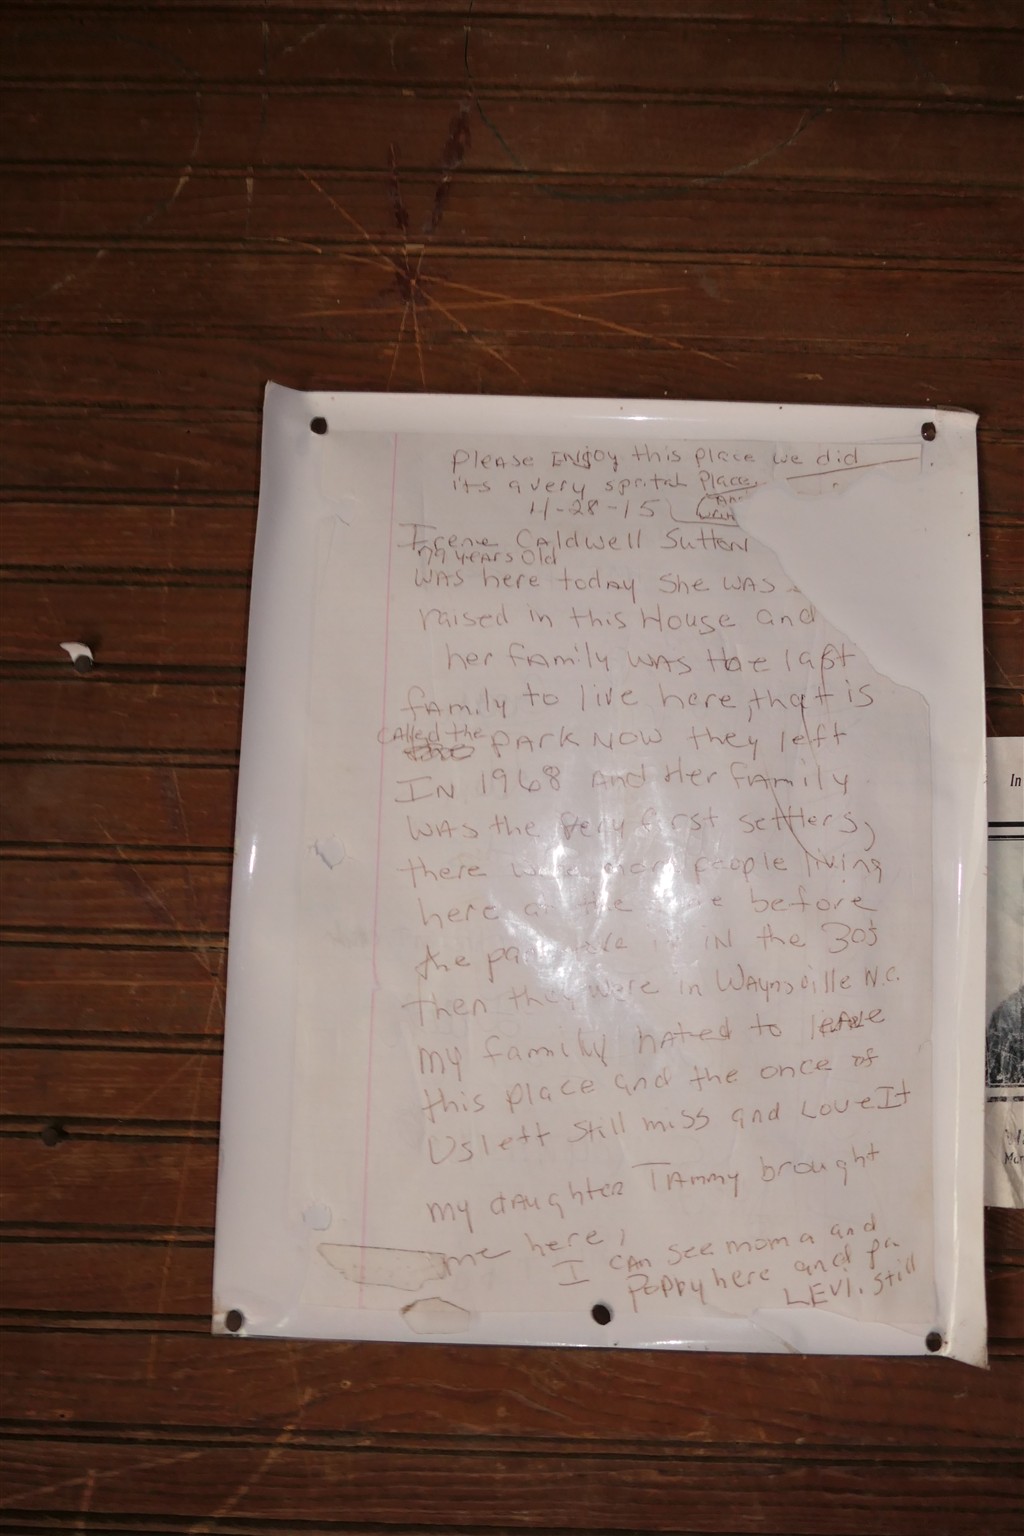 Please ENJOY this place we did
its a very sprital Place
11-28-15
Irene Caldwell Sutton
79 years old
was here today she was
raised in this House and
her family was the last
family to live here, that is
called the PARK NOW they left
IN 1968 and Her family
was the very first settlers,
there were more people living
here at the before
the in the 30s
then they were in Waynsville N.C.
my family hated to leave
this place and the once of
Us left still miss and Love It
my daughter Tammy brought
me here,
I can see mom a and
Poppy here and pa
LEVI. still
In